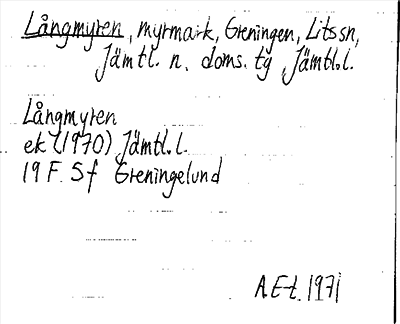 Långmyren, myrmark, Greningen, Litssn,
Jämtl. n. doms. tg, Jämtl.l.
Långmyren
ek (1970) Jämtl.l.
19 F. 5f Greningelund
A.E-t. 1971